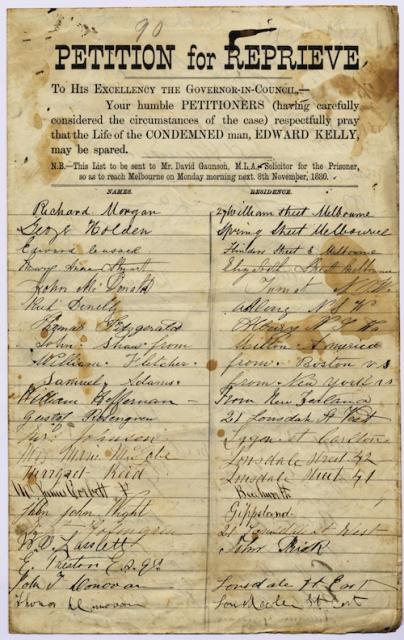 90
PETITION for REPRIEVE
To His Excellency the Governor-in-Council,—
Your humble PETITIONERS (having carefully
considered the circumstances of the case) respectfully pray
that the Life of the CONDEMNED man, EDWARD KELLY,
may be spared.
N.B.—This List to be sent to Mr. David Gaunson, M.L.A., Solicitor for the Prisoner,
so as to reach Melbourne on Monday morning next, 8th November, 1880.
NAMES. RESIDENCE.
Richard Morgan 27 William street Melbourne
George Holden Spring Street Melbourne
Edward Flinders Street Melbourne
Elizabeth Street Melbourne
John McDonald Tumut N S W
Denelly N S W
Thomas Fitzgerald Albury N S W
John Shaw from Milton America
William Fletcher from Boston
Samuel Adams from New York
William Heffernan From New Zealand
Gustaf 21 Lonsdale St West
Mrs Johnson St Carlton
Mrs Lonsdale Street 42
Margaret Reid Lonsdale Street 41
James Beechworth
John Gippsland
21 West
W. D. Lasslett John
G. Preston
John J Donovan Lonsdale St East
Donovan Street East